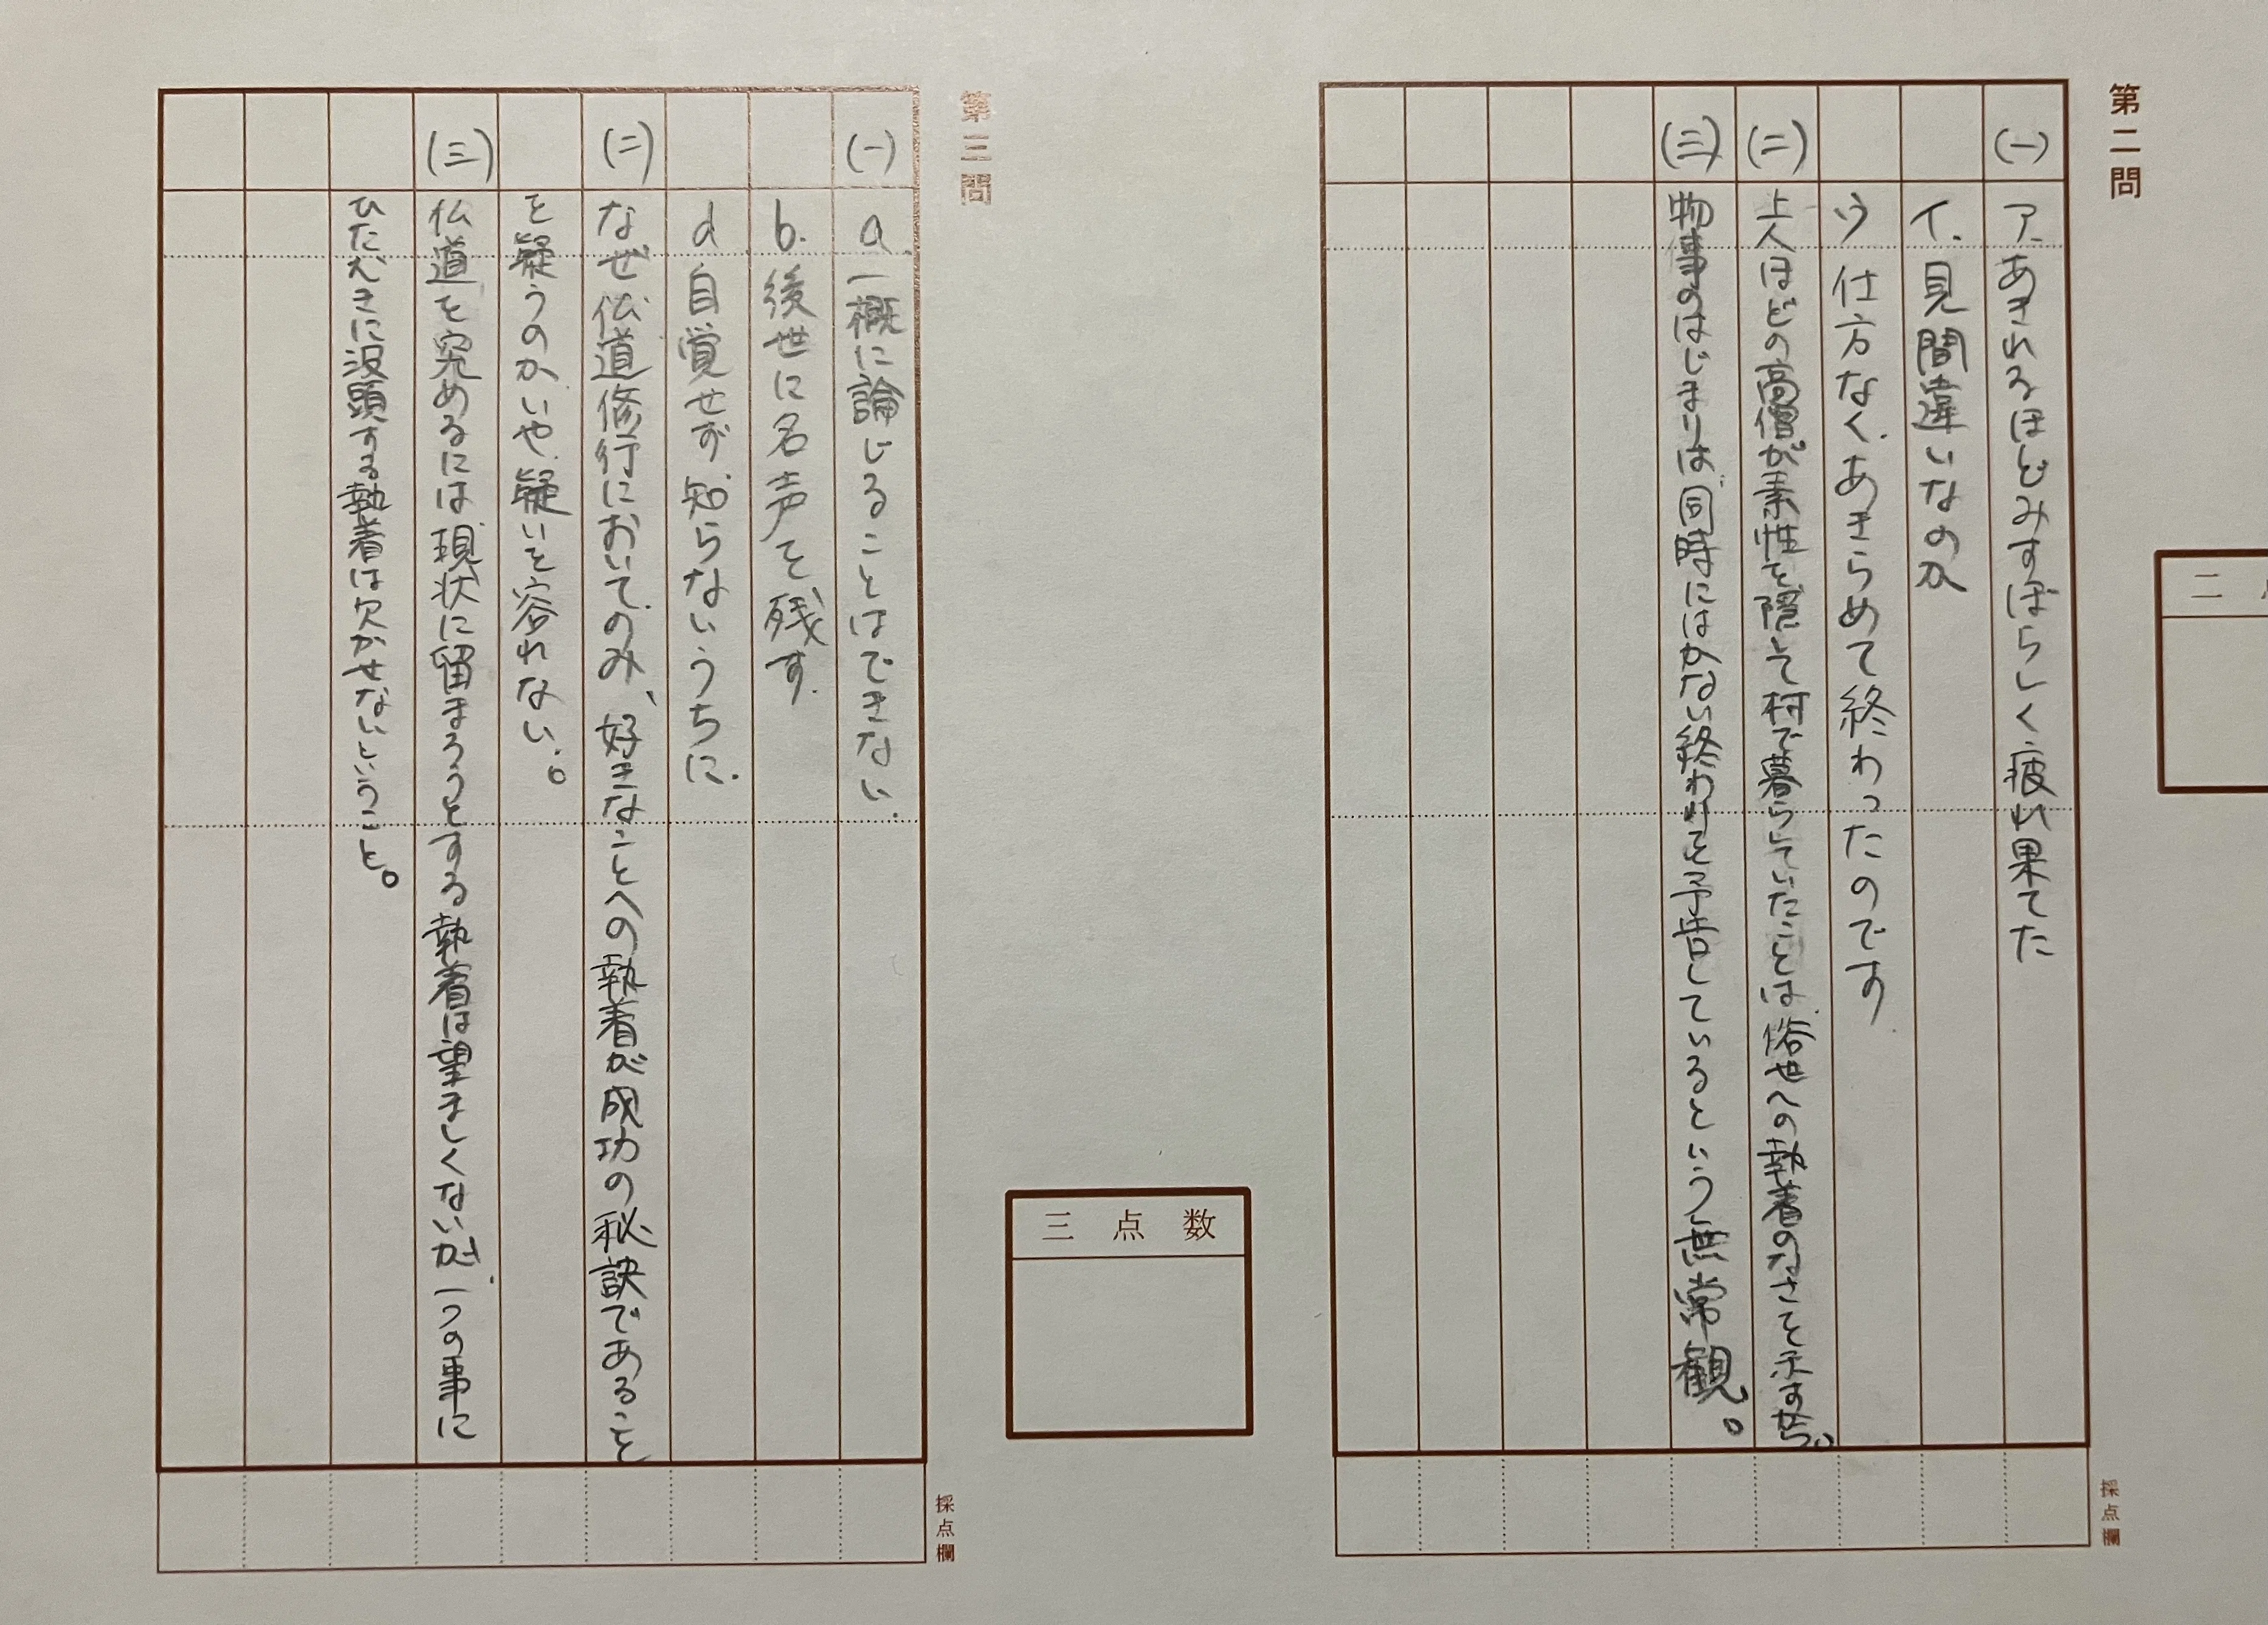 第二問
(一)
ア. あきれるほどみすぼらしく疲れ果てた
イ. 見間違いなのか
ウ 仕方なく、あきらめて終わったのです.
(二) 上人ほどの高僧が素性を隠して村で暮らしていたことは俗世への執着のなさを示すから。
(三) 物事のはじまりは同時にはかない終わりを予告しているという無常観。
採点欄
二
三点数
第三問
(一) a. 一概に論じることはできない.
b. 後世に名声を残す.
d 自覚せず知らないうちに.
(二) なぜ仏道修行においてのみ、好きなことへの執着が成功の秘訣であること
を疑うのか、いや、疑いを容れない。
(三) 仏道を究めるには現状に留まろうとする執着は望ましくないが、一つの事に
ひたむきに没頭する執着は欠かせないということ。
採点欄